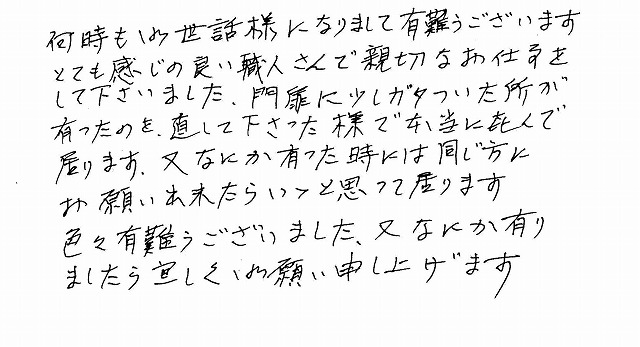 何時もお世話様になりまして有難うございます
とても感じの良い職人さんで親切なお仕事を
して下さいました、門扉に少しガタついた所が
有ったのを、直して下さった様で本当に喜んで
居ります、又なにか有った時には同じ方に
お願い出来たらいいと思って居ります
色々有難うございました、又なにか有り
ましたら宜しくお願い申し上げます